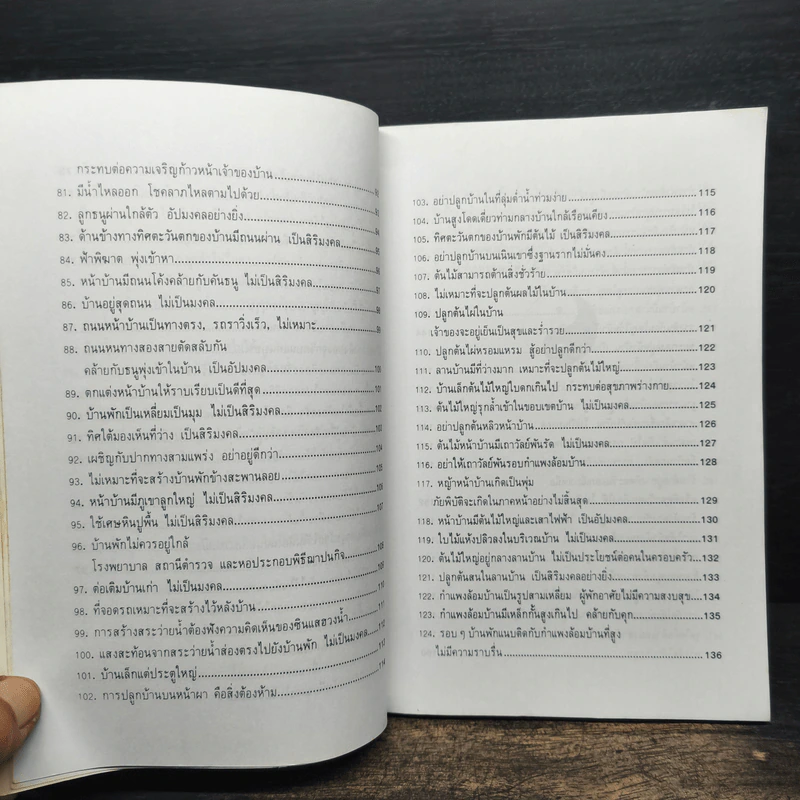 กระทบต่อความเจริญก้าวหน้าเจ้าของบ้าน
81. มีน้ำไหลออก โชคลาภไหลตามไปด้วย
82. ลูกธนูผ่านใกล้ตัว อัปมงคลอย่างยิ่ง
83. ด้านข้างทางทิศตะวันตกของบ้านมีถนนผ่าน เป็นสิริมงคล
84. ฟ้าพิฆาต พุ่งเข้าหา
85. หน้าบ้านมีถนนโค้งคล้ายกับคันธนู ไม่เป็นสิริมงคล 97
86. บ้านอยู่สุดถนน ไม่เป็นมงคล 98
87. ถนนหน้าบ้านเป็นทางตรง, รถราวิ่งเร็ว, ไม่เหมาะ 99
88. ถนนหนทางสองสายตัดสลับกัน
คล้ายกับธนูพุ่งเข้าในบ้าน เป็นอัปมงคล 100
89. ตกแต่งหน้าบ้านให้ราบเรียบเป็นดีที่สุด 101
90. บ้านพักเป็นเหลี่ยมเป็นมุม ไม่เป็นสิริมงคล 102
91. ทิศใต้มองเห็นที่ว่าง เป็นสิริมงคล 103
92. เผชิญกับปากทางสามแพร่ง อย่าอยู่ดีกว่า 104
93. ไม่เหมาะที่จะสร้างบ้านพักข้างสะพานลอย 105
94. หน้าบ้านมีภูเขาลูกใหญ่ ไม่เป็นสิริมงคล 106
95. ใช้เศษหินปูพื้น ไม่เป็นสิริมงคล 107
96. บ้านพักไม่ควรอยู่ใกล้
โรงพยาบาล สถานีตำรวจ และหอประกอบพิธีฌาปนกิจ 108
97. ต่อเติมบ้านเก่า ไม่เป็นมงคล 109
98. ที่จอดรถเหมาะที่จะสร้างไว้หลังบ้าน 110
99. การสร้างสระว่ายน้ำต้องฟังความคิดเห็นของซินแสฮวงน้ำ 111
100. แสงสะท้อนจากสระว่ายน้ำส่องตรงไปยังบ้านพัก ไม่เป็นมงคล 112
101. บ้านเล็กแต่ประตูใหญ่ 113
102. การปลูกบ้านบนหน้าผา คือสิ่งต้องห้าม 114
103. อย่าปลูกบ้านในที่ลุ่มต่ำน้ำท่วมง่าย 115
104. บ้านสูงโดดเดี่ยวท่ามกลางบ้านใกล้เรือนเคียง 116
105. ทิศตะวันตกของบ้านพักมีต้นไม้ เป็นสิริมงคล 117
106. อย่าปลูกบ้านบนเนินเขาซึ่งฐานรากไม่มั่นคง 118
107. ต้นไม้สามารถต้านสิ่งชั่วร้าย 119
108. ไม่เหมาะที่จะปลูกต้นผลไม้ในบ้าน 120
109. ปลูกต้นไผ่ในบ้าน
เจ้าของจะอยู่เย็นเป็นสุขและร่ำรวย 121
110. ปลูกต้นไผ่หรอมแหรม สู้อย่าปลูกดีกว่า 122
111. ลานบ้านมีที่ว่างมาก เหมาะที่จะปลูกต้นไม้ใหญ่ 123
112. บ้านเล็กต้นไม้ใหญ่ใบดกเกินไป กระทบต่อสุขภาพร่างกาย 124
113. ต้นไม้ใหญ่รุกล้ำเข้าในขอบเขตบ้าน ไม่เป็นมงคล 125
114. อย่าปลูกต้นหลิวหน้าบ้าน 126
115. ต้นไม้หน้าบ้านมีเถาวัลย์พันรัด ไม่เป็นมงคล 127
116. อย่าให้เถาวัลย์พันรอบกำแพงล้อมบ้าน 128
117. หญ้าหน้าบ้านเกิดเป็นพุ่ม
ภัยพิบัติจะเกิดในภาคหน้าอย่างไม่สิ้นสุด 129
118. หน้าบ้านมีต้นไม้ใหญ่และเสาไฟฟ้า เป็นอัปมงคล 130
119. ใบไม้แห้งปลิวลงในบริเวณบ้าน ไม่เป็นมงคล 131
120. ต้นไม้ใหญ่อยู่กลางลานบ้าน ไม่เป็นประโยชน์ต่อคนในครอบครัว 132
121. ปลูกต้นสนในลานบ้าน เป็นสิริมงคลอย่างยิ่ง 133
122. กำแพงล้อมบ้านเป็นรูปสามเหลี่ยม ผู้พักอาศัยไม่มีความสงบสุข 134
123. กำแพงล้อมบ้านมีเหล็กกั้นสูงเกินไป คล้ายกับคุก 135
124. รอบๆ บ้านพักแนบติดกับกำแพงล้อมบ้านที่สูง
ไม่มีความราบรื่น 136